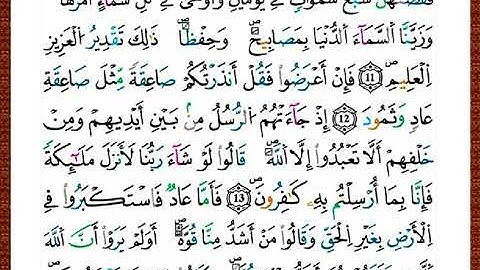 فَقَضَىٰهُنَّ سَبْعَ سَمَٰوَاتٍ فِي يَوْمَيْنِ وَأَوْحَىٰ فِي كُلِّ سَمَآءٍ أَمْرَهَا
وَزَيَّنَّا ٱلسَّمَآءَ ٱلدُّنْيَا بِمَصَٰبِيحَ وَحِفْظًا ذَٰلِكَ تَقْدِيرُ ٱلْعَزِيزِ
ٱلْعَلِيمِ 11 فَإِنْ أَعْرَضُوا۟ فَقُلْ أَنذَرْتُكُمْ صَٰعِقَةً مِّثْلَ صَٰعِقَةِ
عَادٍ وَثَمُودَ 12 إِذْ جَآءَتْهُمُ ٱلرُّسُلُ مِنۢ بَيْنِ أَيْدِيهِمْ وَمِنْ
خَلْفِهِمْ أَلَّا تَعْبُدُوٓا۟ إِلَّا ٱللَّهَ قَالُوا۟ لَوْ شَآءَ رَبُّنَا لَأَنزَلَ مَلَٰٓئِكَةً
فَإِنَّا بِمَآ أُرْسِلْتُم بِهِۦ كَٰفِرُونَ 13 فَأَمَّا عَادٌ فَٱسْتَكْبَرُوا۟ فِي
ٱلْأَرْضِ بِغَيْرِ ٱلْحَقِّ وَقَالُوا۟ مَنْ أَشَدُّ مِنَّا قُوَّةً أَوَلَمْ يَرَوْا۟ أَنَّ ٱللَّهَ